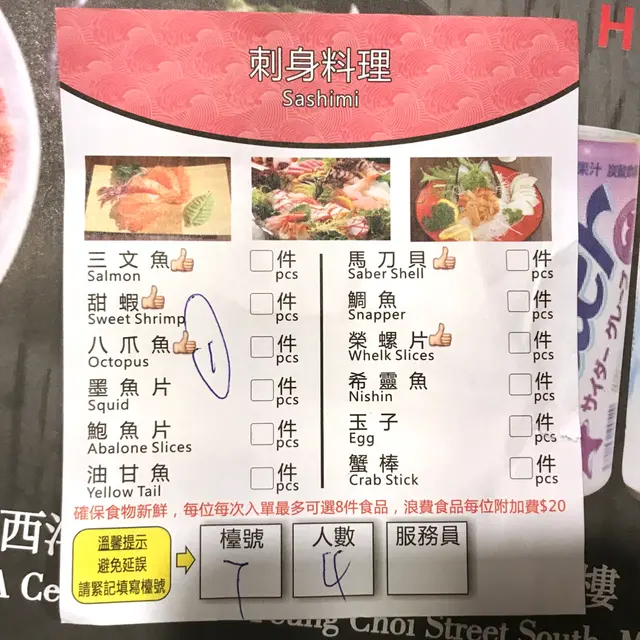 H
刺身料理
Sashimi
果汁 炭酸飲
三文魚 件
Salmon pcs
甜蝦 件
Sweet Shrimp pcs
八爪魚 件
Octopus pcs
1
墨魚片 件
Squid pcs
鮑魚片 件
Abalone Slices pcs
油甘魚 件
Yellow Tail pcs
馬刀貝 件
Saber Shell pcs
鯛魚 件
Snapper pcs
榮螺片 件
Whelk Slices pcs
希靈魚 件
Nishin pcs
玉子 件
Egg pcs
蟹棒 件
Crab Stick pcs
サイダー グレープ
確保食物新鮮，每位每次入單最多可選8件食品，浪費食品每位附加費$20
溫馨提示
避免延誤
請緊記填寫檯號
檯號
7
人數
4
服務員
西洋
樓
A Ce
Choi Street South